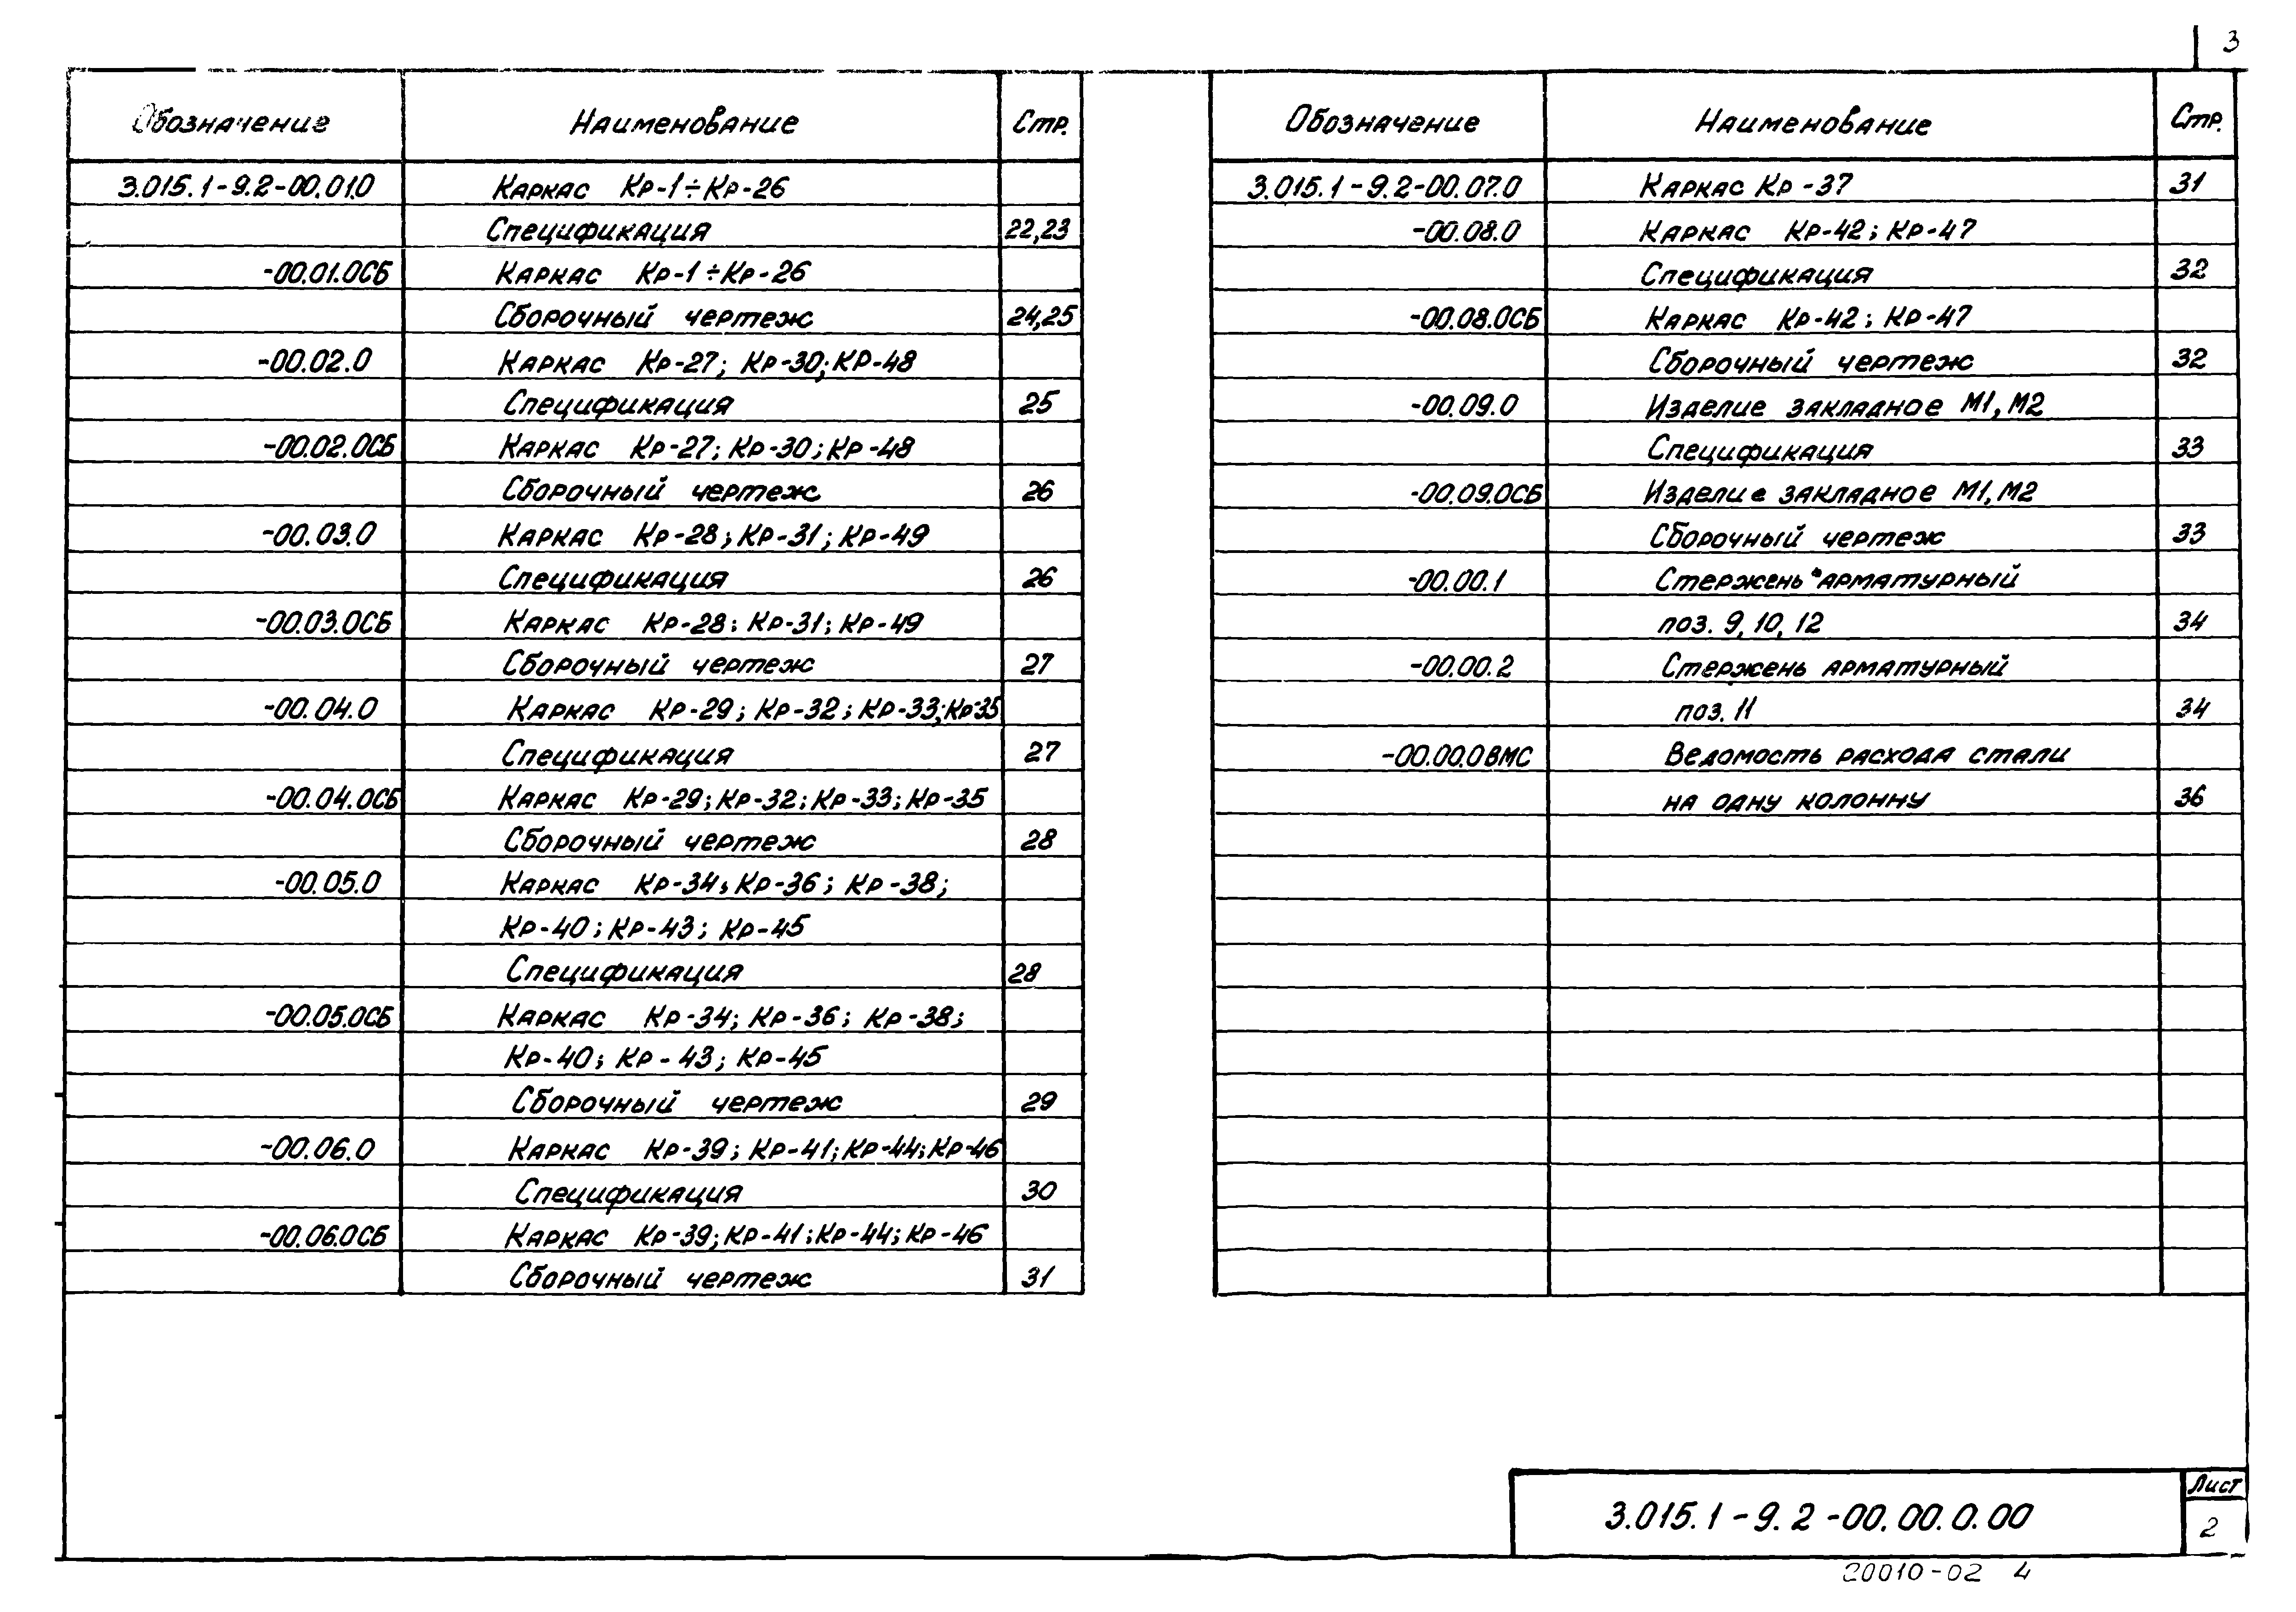 3
Обозначение Наименование Стр.
3.015.1-9.2-00.01.0 Каркас Кр-1÷Кр-26
Спецификация 22,23
-00.01.0СБ Каркас Кр-1÷Кр-26
Сборочный чертеж 24,25
-00.02.0 Каркас Кр-27; Кр-30; КР-48
Спецификация 25
-00.02.0СБ Каркас Кр-27; Кр-30; Кр-48
Сборочный чертеж 26
-00.03.0 Каркас Кр-28; Кр-31; Кр-49
Спецификация 26
-00.03.0СБ Каркас Кр-28; Кр-31; Кр-49
Сборочный чертеж 27
-00.04.0 Каркас Кр-29; Кр-32; Кр-33; Кр-35
Спецификация 27
-00.04.0СБ Каркас Кр-29; Кр-32; Кр-33; Кр-35
Сборочный чертеж 28
-00.05.0 Каркас Кр-34; Кр-36; Кр-38;
Кр-40; Кр-43; Кр-45
Спецификация 28
-00.05.0СБ Каркас Кр-34; Кр-36; Кр-38;
Кр-40; Кр-43; Кр-45
Сборочный чертеж 29
-00.06.0 Каркас Кр-39; Кр-41; Кр-44; Кр-46
Спецификация 30
-00.06.0СБ Каркас Кр-39; Кр-41; Кр-44; Кр-46
Сборочный чертеж 31
Обозначение Наименование Стр.
3.015.1-9.2-00.07.0 Каркас Кр-37 31
-00.08.0 Каркас Кр-42; Кр-47
Спецификация 32
-00.08.0СБ Каркас Кр-42; Кр-47
Сборочный чертеж 32
-00.09.0 Изделие закладное М1, М2
Спецификация 33
-00.09.0СБ Изделие закладное М1, М2
Сборочный чертеж 33
-00.00.1 Стержень арматурный
поз. 9, 10, 12 34
-00.00.2 Стержень арматурный
поз. 11 34
-00.00.0ВМС Ведомость расхода стали
на одну колонну 36
3.015.1-9.2-00.00.0.00
Лист
2
20010-02 4